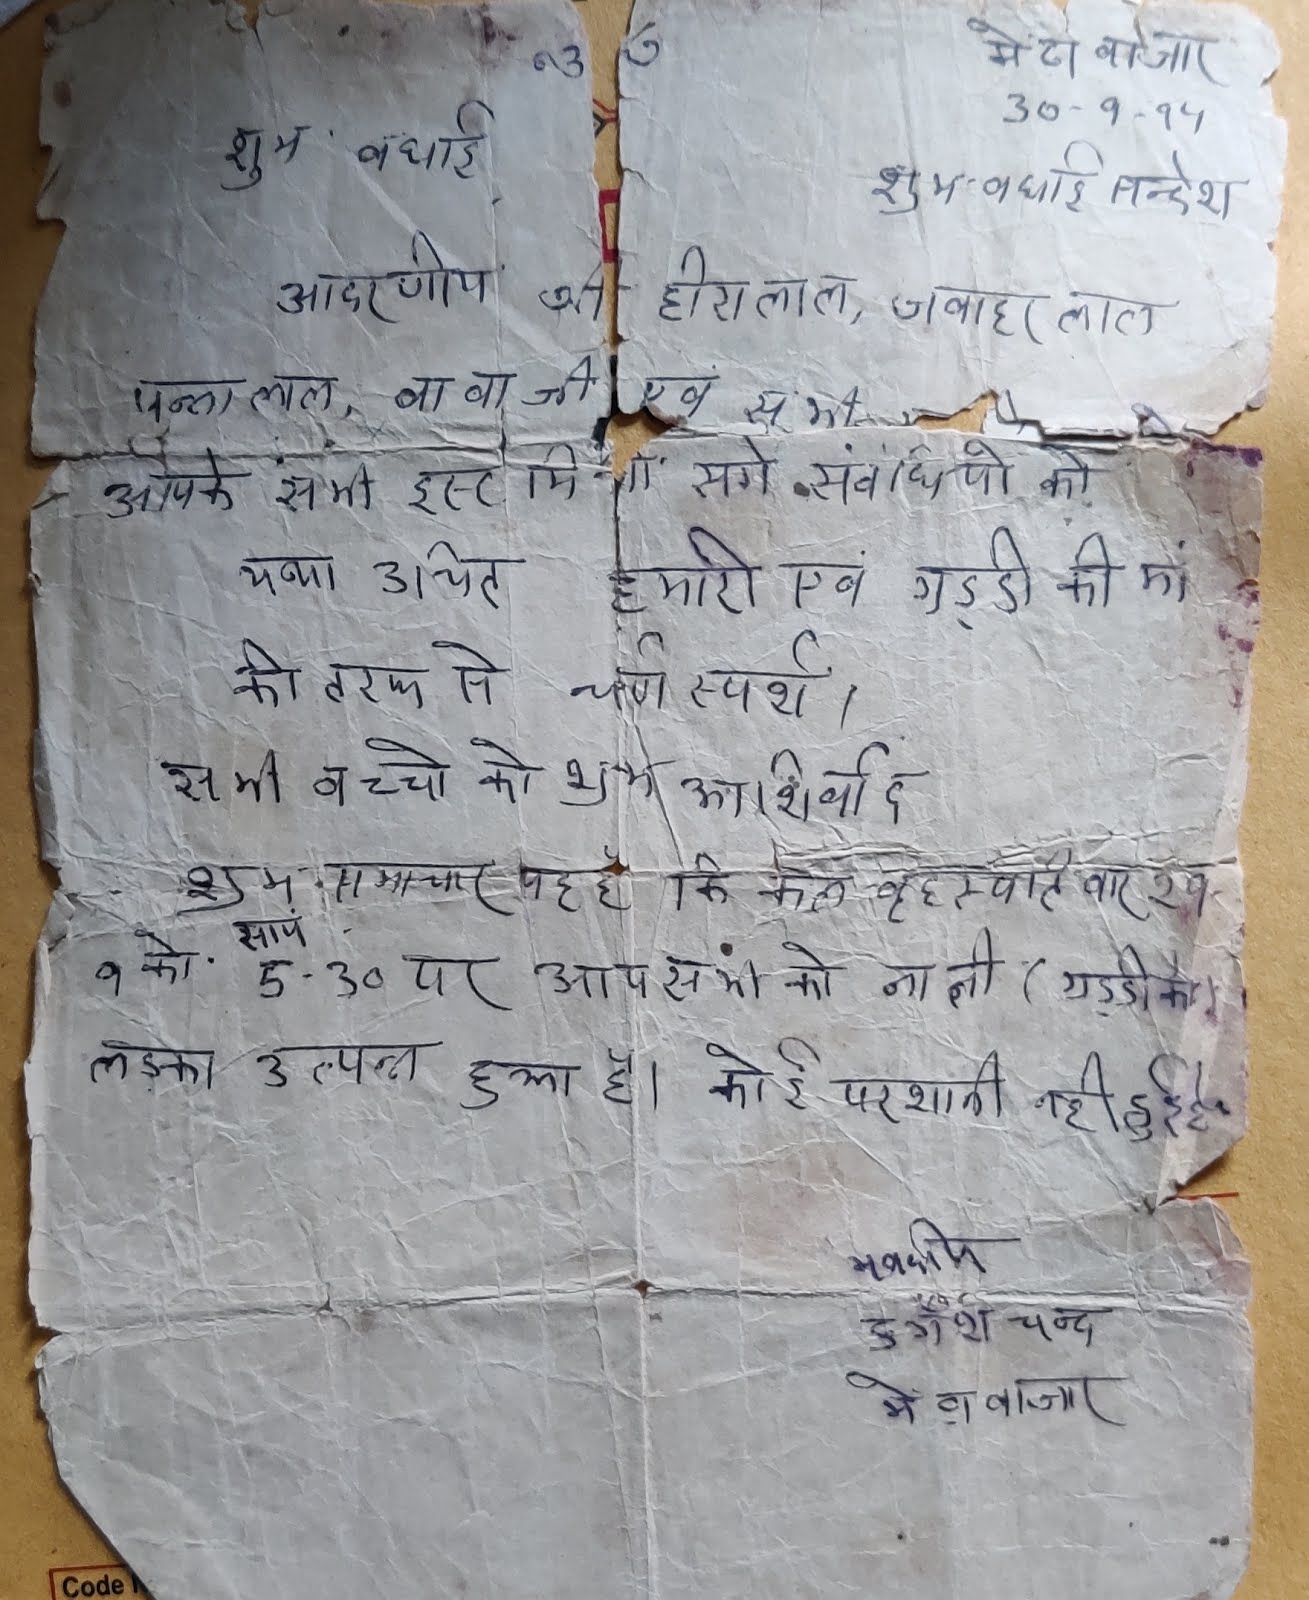 मेंदा बाजार
30-9-94
शुभ बधाई
शुभ-बधाई सन्देश
आदरणीय श्री हीरालाल, जवाहर लाल
पन्नालाल, बाबा जी एवं सभी
आपके सभी इस्ट मित्रों सगे संबंधियो को
यथा उचित हमारी एवं गुड्डी की मां
की तरफ से चर्ण स्पर्श।
सभी बच्चो को शुभ आशिर्वाद
शुभ समाचार यह है कि कल बृहस्पतिवार २९-
९ को सायं 5-30 पर आप सभी को नाती (गुड्डी को)
लड़का उत्पन्न हुआ है। कोई परशानी नही हुई है
भवदीय
दुर्गेश चन्द
मेंदा बाजार
Code